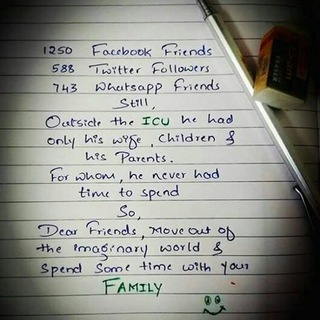 1250 Facebook Friends
588 Twitter Followers
743 Whatsapp Friends
Still,
Outside the ICU he had
only his wife, Children &
his Parents.
For whom, he never had
time to spend
So,
Dear Friends, Move out of
the imaginary world &
Spend Some time with your
FAMILY